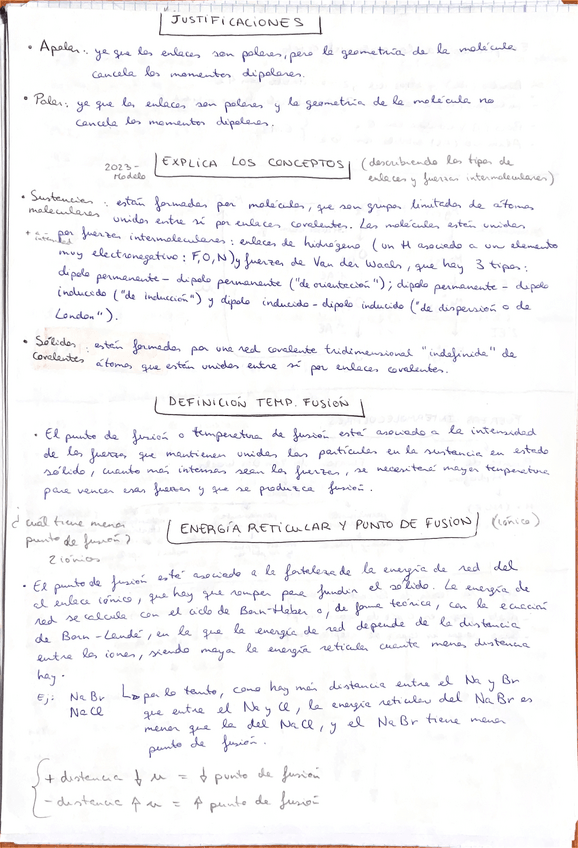 JUSTIFICACIONES
• Apolar: ya que los enlaces son polares, pero la geometría de la molécula
cancela los momentos dipolares.
• Polar: ya que los enlaces son polares y la geometría de la molécula no
cancela los momentos dipolares.
2023-
Modelo
EXPLICA LOS CONCEPTOS
(describiendo los tipos de
enlaces y fuerzas intermoleculares)
• Sustancias moleculares: están formadas por moléculas, que son grupos limitados de átomos
unidos entre sí por enlaces covalentes. Las moléculas están unidas
por fuerzas intermoleculares: enlaces de hidrógeno (un H asociado a un elemento
muy electronegativo: F, O, N) y fuerzas de Van der Waals, que hay 3 tipos:
dipolo permanente - dipolo permanente ("de orientación"); dipolo permanente - dipolo
inducido ("de inducción") y dipolo inducido - dipolo inducido ("de dispersión o de
London").
• Sólidos covalentes: están formados por una red covalente tridimensional "indefinida" de
átomos que están unidos entre sí por enlaces covalentes.
DEFINICIÓN TEMP. FUSIÓN
• El punto de fusión o temperatura de fusión está asociado a la intensidad
de las fuerzas que mantienen unidas las partículas en la sustancia en estado
sólido, cuanto más intensas sean las fuerzas, se necesitará mayor temperatura
para vencer esas fuerzas y que se produzca fusión.
¿cuál tiene menor
punto de fusión?
2 iónicos
ENERGÍA RETICULAR Y PUNTO DE FUSION
(iónico)
• El punto de fusión está asociado a la fortaleza de la energía de red del
el enlace iónico, que hay que romper para fundir el sólido. La energía de
red se calcula con el ciclo de Born-Haber o, de forma teórica, con la ecuación
de Born-Landé, en la que la energía de red depende de la distancia
entre los iones, siendo mayor la energía reticular cuanta menos distancia
hay.
Ej: NaBr
NaCl
↳ por lo tanto, como hay más distancia entre el Na y Br
que entre el Na y Cl, la energía reticular del NaBr es
menor que la del NaCl, y el NaBr tiene menor
punto de fusión.
+ distancia ↓ u = ↓ punto de fusión
- distancia ↑ u = ↑ punto de fusión